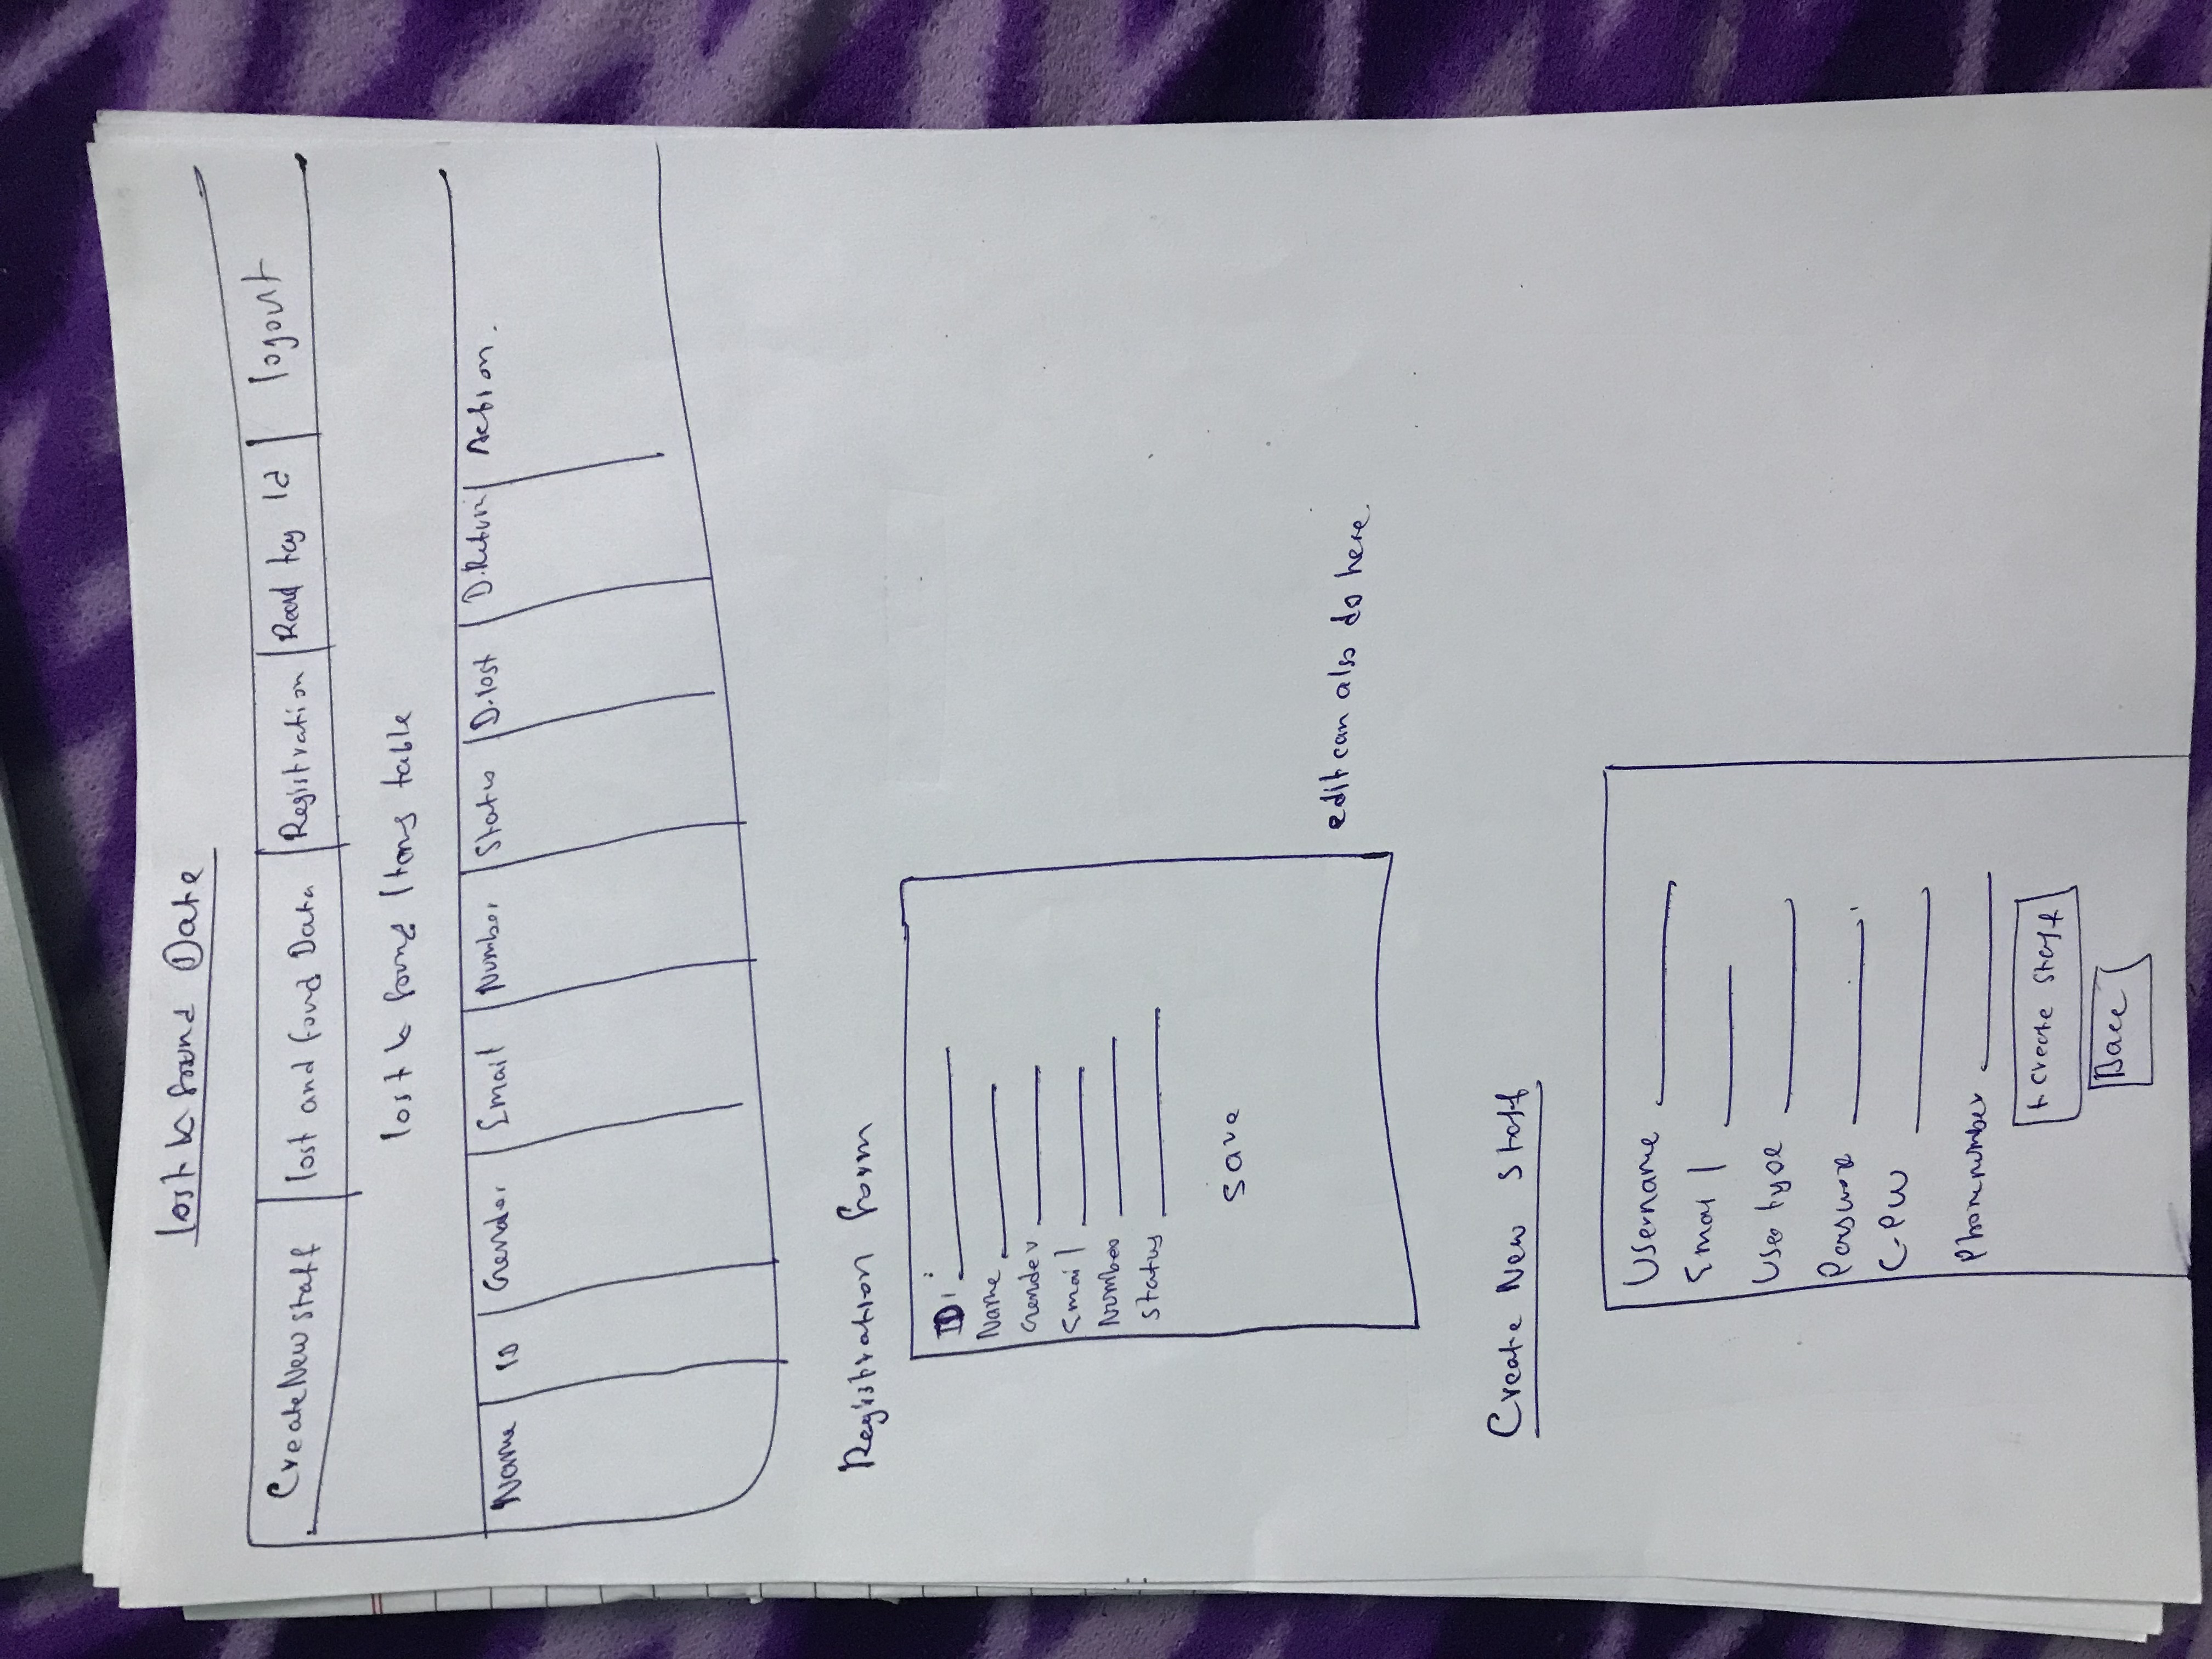 lost & found Date
Create New staff lost and found Data Registration Read tag Id logout
lost & found Items table
Name ID Gender Email Number Status D.lost D.Return Action.
Registration form
ID:
Name
Gender
Email
Number
Status
Save
edit can also do here.
Create New Staff
Username
Email
User type
C-PW
Phone number
+ create staff